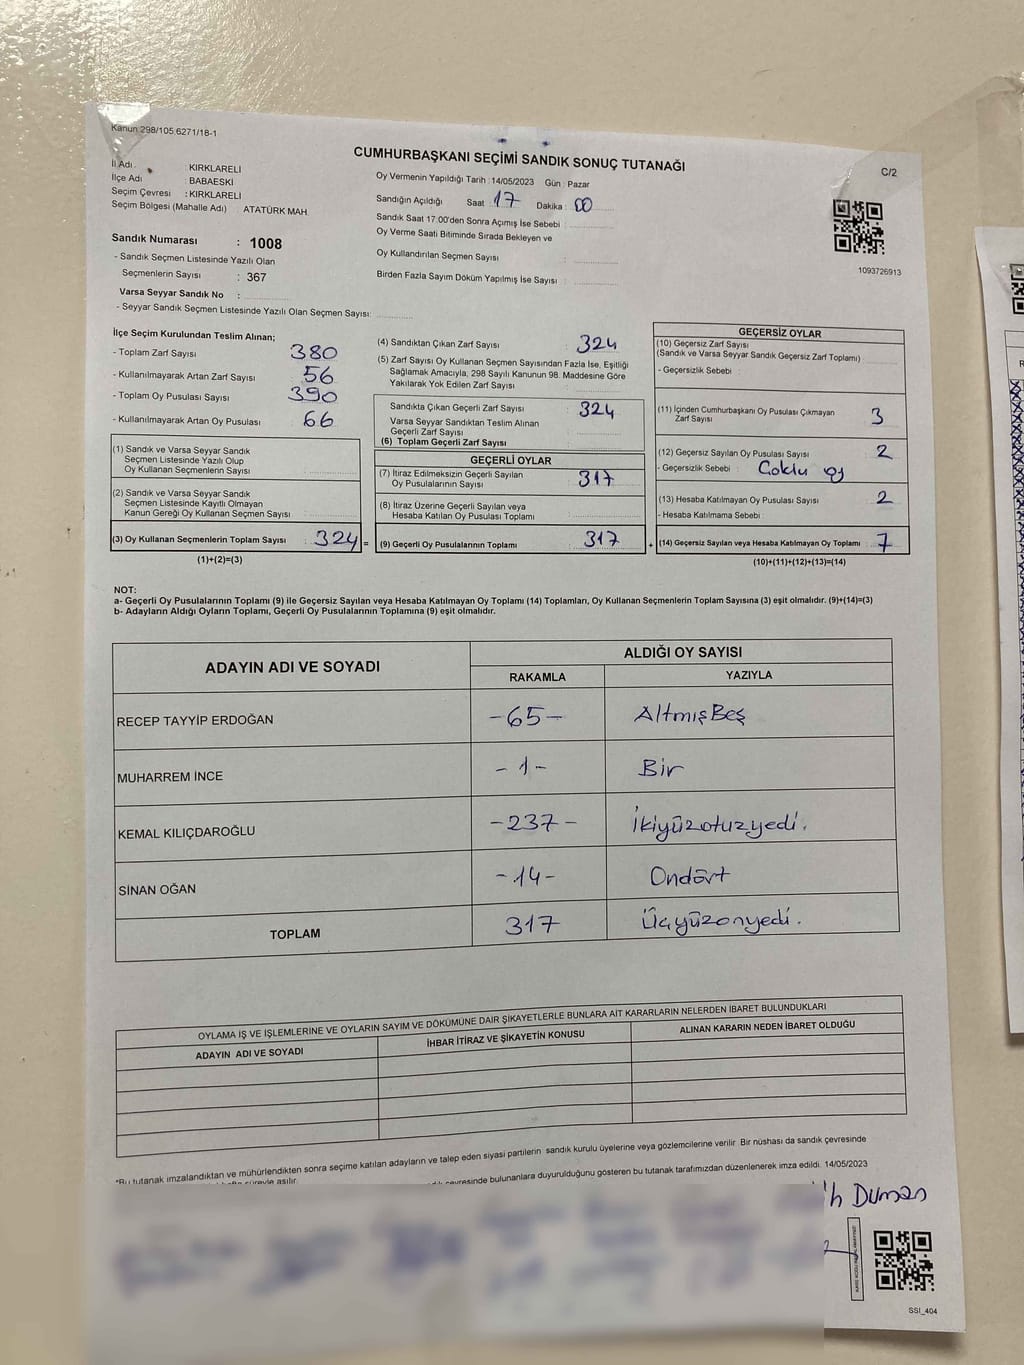 Kanun 298/105.6271/18-1
CUMHURBAŞKANI SEÇİMİ SANDIK SONUÇ TUTANAĞI
C/2
İl Adı : KIRKLARELİ
İlçe Adı : BABAESKİ
Seçim Çevresi : KIRKLARELİ
Seçim Bölgesi (Mahalle Adı) ATATÜRK MAH.
Sandık Numarası : 1008
- Sandık Seçmen Listesinde Yazılı Olan
Seçmenlerin Sayısı : 367
Varsa Seyyar Sandık No :
- Seyyar Sandık Seçmen Listesinde Yazılı Olan Seçmen Sayısı:
Oy Vermenin Yapıldığı Tarih : 14/05/2023 Gün : Pazar
Sandığın Açıldığı Saat : 17 Dakika : 00
Sandık Saat 17:00'den Sonra Açımış İse Sebebi :
Oy Verme Saati Bitiminde Sırada Bekleyen ve
Oy Kullandırılan Seçmen Sayısı :
Birden Fazla Sayım Döküm Yapılmış İse Sayısı :
1093726913
İlçe Seçim Kurulundan Teslim Alınan;
- Toplam Zarf Sayısı : 380
- Kullanılmayarak Artan Zarf Sayısı : 56
- Toplam Oy Pusulası Sayısı : 390
- Kullanılmayarak Artan Oy Pusulası : 66
(1) Sandık ve Varsa Seyyar Sandık
Seçmen Listesinde Yazılı Olup
Oy Kullanan Seçmenlerin Sayısı :
(2) Sandık ve Varsa Seyyar Sandık
Seçmen Listesinde Kayıtlı Olmayan
Kanun Gereği Oy Kullanan Seçmen Sayısı :
(3) Oy Kullanan Seçmenlerin Toplam Sayısı : 324 =
(1)+(2)=(3)
(4) Sandıktan Çıkan Zarf Sayısı : 324
(5) Zarf Sayısı Oy Kullanan Seçmen Sayısından Fazla İse, Eşitliği
Sağlamak Amacıyla, 298 Sayılı Kanunun 98. Maddesine Göre
Yakılarak Yok Edilen Zarf Sayısı :
Sandıkta Çıkan Geçerli Zarf Sayısı : 324
Varsa Seyyar Sandıktan Teslim Alınan
Geçerli Zarf Sayısı :
(6) Toplam Geçerli Zarf Sayısı :
GEÇERLİ OYLAR
(7) İtiraz Edilmeksizin Geçerli Sayılan
Oy Pusulalarının Sayısı : 317
(8) İtiraz Üzerine Geçerli Sayılan veya
Hesaba Katılan Oy Pusulası Toplamı :
(9) Geçerli Oy Pusulalarının Toplamı : 317 +
GEÇERSİZ OYLAR
(10) Geçersiz Zarf Sayısı
(Sandık ve Varsa Seyyar Sandık Geçersiz Zarf Toplamı) :
- Geçersizlik Sebebi :
(11) İçinden Cumhurbaşkanı Oy Pusulası Çıkmayan
Zarf Sayısı : 3
(12) Geçersiz Sayılan Oy Pusulası Sayısı : 2
- Geçersizlik Sebebi : Çoklu oy
(13) Hesaba Katılmayan Oy Pusulası Sayısı : 2
- Hesaba Katılmama Sebebi :
(14) Geçersiz Sayılan veya Hesaba Katılmayan Oy Toplamı : 7
(10)+(11)+(12)+(13)=(14)
NOT:
a- Geçerli Oy Pusulalarının Toplamı (9) ile Geçersiz Sayılan veya Hesaba Katılmayan Oy Toplamı (14) Toplamları, Oy Kullanan Seçmenlerin Toplam Sayısına (3) eşit olmalıdır. (9)+(14)=(3)
b- Adayların Aldığı Oyların Toplamı, Geçerli Oy Pusulalarının Toplamına (9) eşit olmalıdır.
ADAYIN ADI VE SOYADI
ALDIĞI OY SAYISI
RAKAMLA YAZIYLA
RECEP TAYYİP ERDOĞAN -65- AltmışBeş
MUHARREM İNCE -1- Bir
KEMAL KILIÇDAROĞLU -237- İkiyüzotuzyedi.
SİNAN OĞAN -14- Ondört
TOPLAM 317 Üçyüzonyedi.
OYLAMA İŞ VE İŞLEMLERİNE VE OYLARIN SAYIM VE DÖKÜMÜNE DAİR ŞİKAYETLERLE BUNLARA AİT KARARLARIN NELERDEN İBARET BULUNDUKLARI
ADAYIN ADI VE SOYADI İHBAR İTİRAZ VE ŞİKAYETİN KONUSU ALINAN KARARIN NEDEN İBARET OLDUĞU
*Bu tutanak imzalandıktan ve mühürlendikten sonra seçime katılan adayların ve talep eden siyasi partilerin sandık kurulu üyelerine veya gözlemcilerine verilir. Bir nüshası da sandık çevresinde
süreyle asılır.
çevresinde bulunanlara duyurulduğunu gösteren bu tutanak tarafımızdan düzenlenerek imza edildi. 14/05/2023
Duman
SSI_404